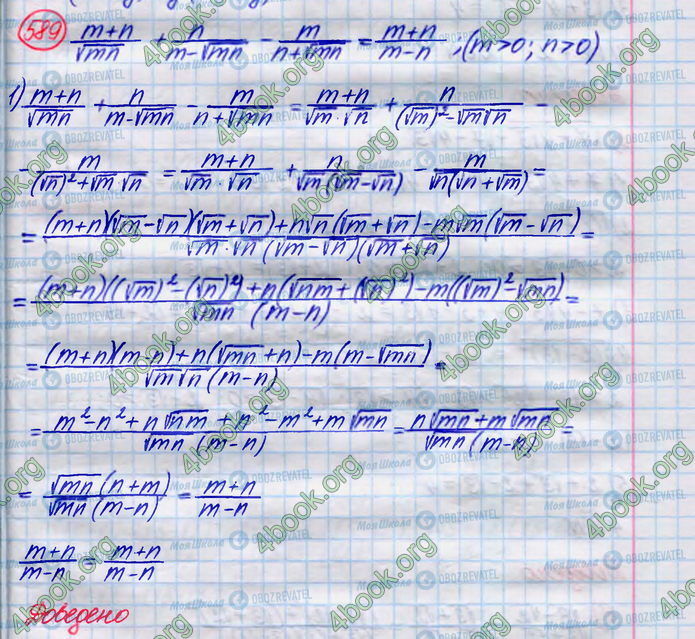 589 (m+n)/√(mn) + n/(m-√(mn)) - m/(n+√(mn)) = (m+n)/(m-n), (m>0; n>0)
1) (m+n)/√(mn) + n/(m-√(mn)) - m/(n+√(mn)) = (m+n)/(√m·√n) + n/((√m)²-√m√n) -
- m/((√n)²+√m·√n) = (m+n)/(√m·√n) + n/(√m(√m-√n)) - m/(√n(√n+√m)) =
= ((m+n)(√m-√n)(√m+√n)+n√n(√m+√n)-m√m(√m-√n))/(√m·√n(√m-√n)(√m+√n)) =
= ((m+n)((√m)²-(√n)²)+n(√(nm)+(√n)²)-m((√m)²-√(mn)))/(√(mn)(m-n)) =
= ((m+n)(m-n)+n(√(mn)+n)-m(m-√(mn)))/(√m√n(m-n)) =
= (m²-n²+n√(nm)+n²-m²+m√(mn))/(√(mn)(m-n)) = (n√(mn)+m√(mn))/(√(mn)(m-n)) =
= (√(mn)(n+m))/(√(mn)(m-n)) = (m+n)/(m-n)
(m+n)/(m-n) = (m+n)/(m-n)
Доведено
4book.org
МояШкола
OBOZREVATEL